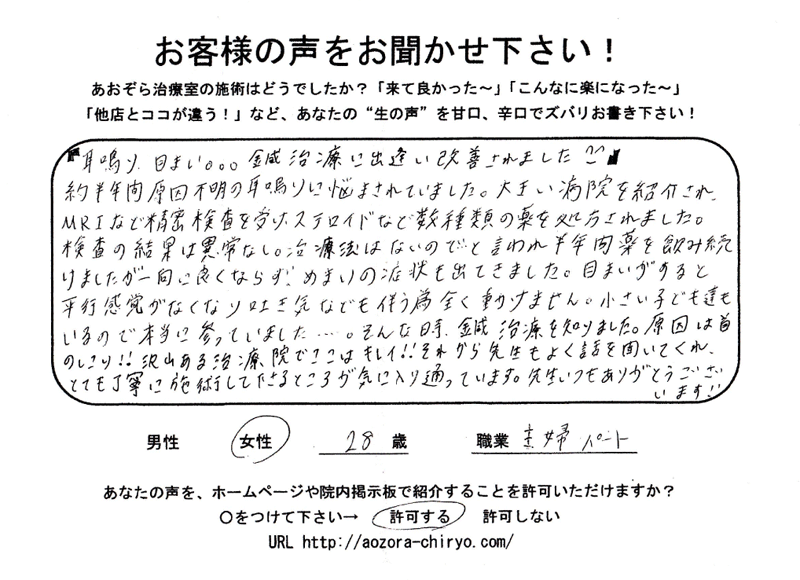 お客様の声をお聞かせ下さい！
あおぞら治療室の施術はどうでしたか？「来て良かった～」「こんなに楽になった～」
「他店とココが違う！」など、あなたの“生の声”を甘口、辛口でズバリお書き下さい！
『耳鳴り、目まい。。。鍼治療に出逢い改善されました』
約半年間原因不明の耳鳴りに悩まされていました。大きい病院を紹介され、
MRIなど精密検査を受け、ステロイドなど数種類の薬を処方されました。
検査の結果は異常なし。治療法はないのでと言われ半年間薬を飲み続
けましたが一向に良くならず、めまいの症状も出てきました。目まいがすると
平行感覚がなくなり吐き気なども伴う為全く動けません。小さい子ども達も
いるので本当に参っていました…。そんな時、鍼治療を知りました。原因は首
のしこり!!沢山ある治療院でここはキレイ!!それから先生もよく話を聞いてくれ、
とても丁寧に施術して下さるところが気に入り通っています。先生いつもありがとうござい
います!!
男性 女性 28 歳 職業 主婦 パート
あなたの声を、ホームページや院内掲示板で紹介することを許可いただけますか？
○をつけて下さい→ 許可する 許可しない
URL http://aozora-chiryo.com/